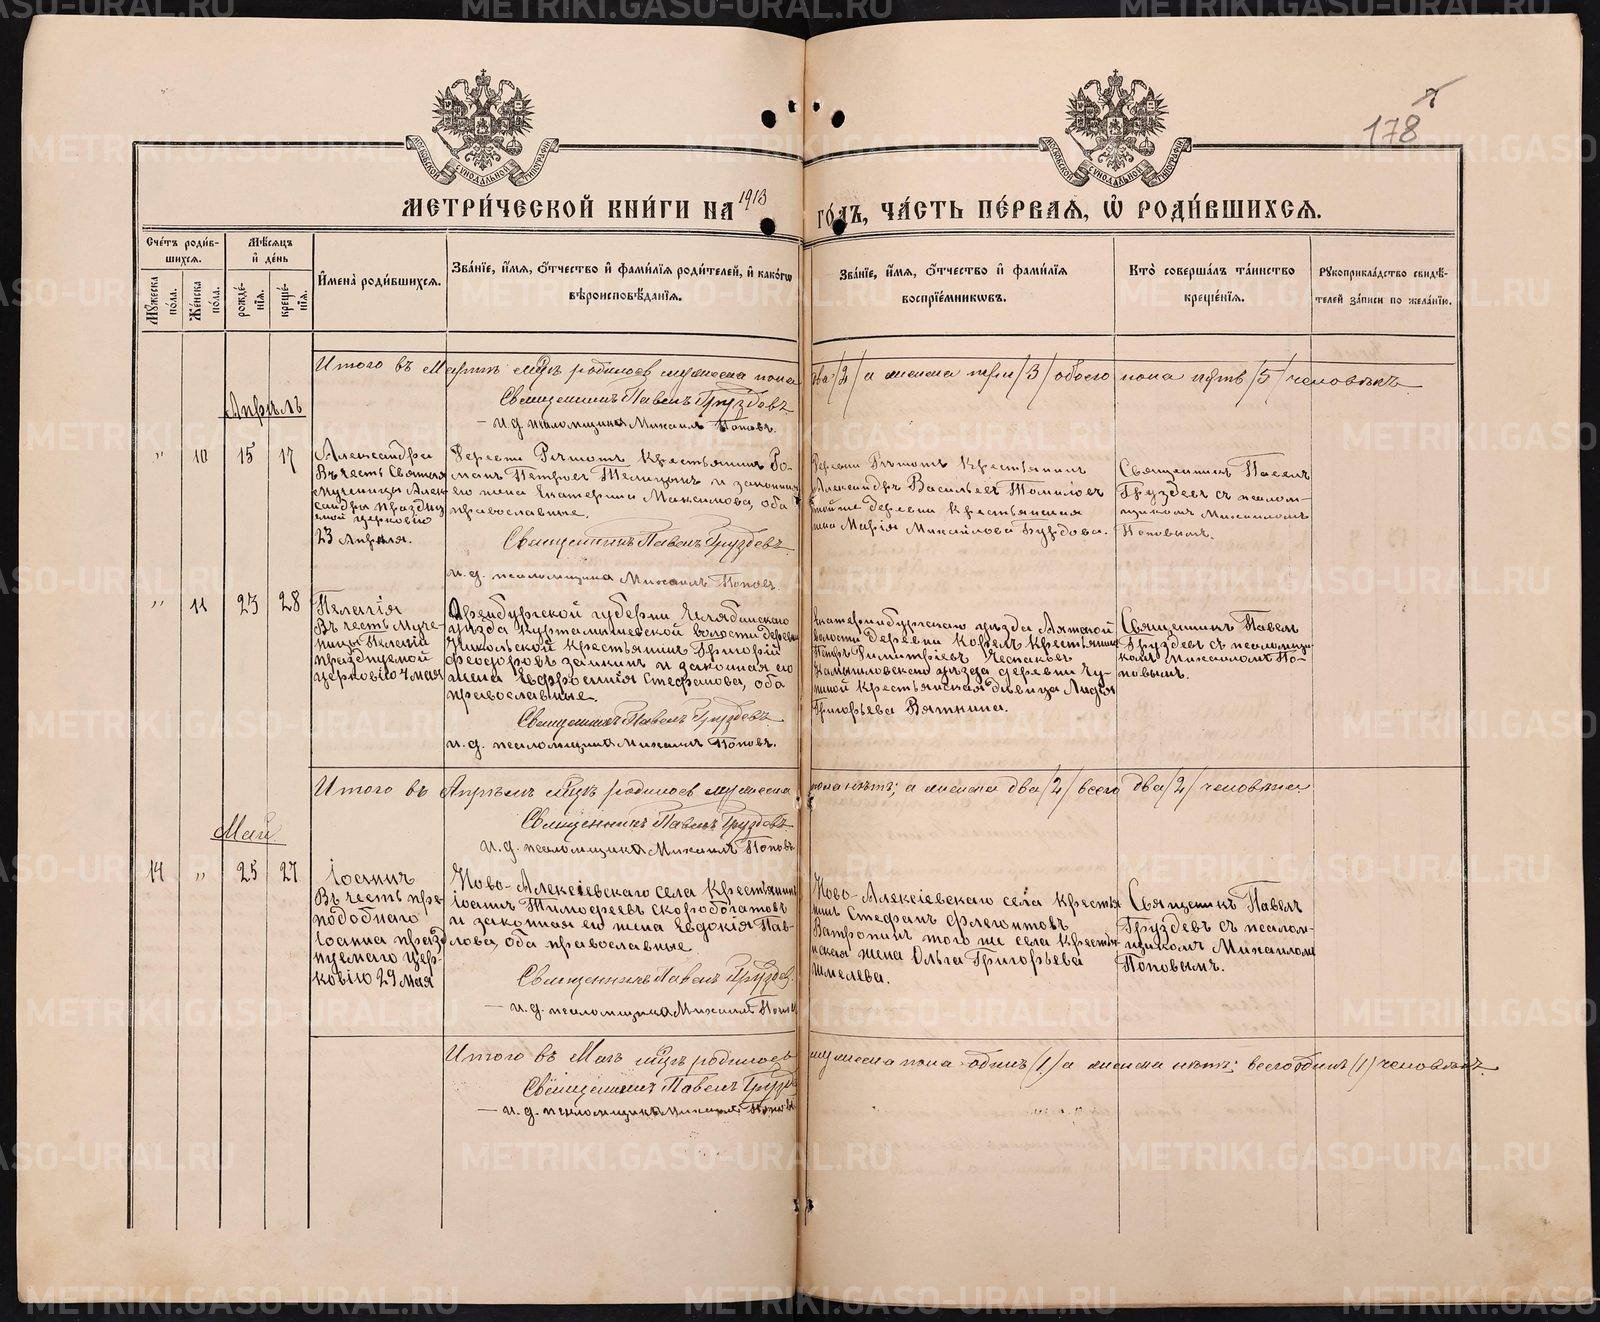 178
МЕТРИ́ЧЕСКОЙ КНИ́ГИ НА 1913 ГО́ДЪ, ЧА́СТЬ ПЕ́РВАЯ, Ѡ РОДИ́ВШИХСЯ.
Счетъ родившихся.
Мужеска пола.
Женска пола.
Мѣсяцъ и день
рожденія.
крещенія.
Имена родившихся.
Званіе, имя, отчество и фамилія родителей, и какогѡ вѣроисповѣданія.
Званіе, имя, отчество и фамилія воспріемниковъ.
Кто совершалъ таинство крещенія.
Рукоприкладство свидѣтелей записи по желанію.
Итого въ Мартѣ мцѣ родилось мужеска пола два /2/ а женска три /3/ обоего пола пять /5/ человѣкъ
Священникъ Павелъ Груздевъ
и.д. псаломщика Михаилъ Поповъ.
Апрѣль
" 10 15 17
Александра
Въ честь Святыя
Мученицы Алек-
сандры празднуе-
мой церковію
23 Апрѣля.
Деревни Рѣчотъ Крестьянинъ Ро-
манъ Петровъ Телицынъ и законная
его жена Екатерина Максимова, оба
православные.
Священникъ Павелъ Груздевъ
и.д. псаломщика Михаилъ Поповъ.
Деревни Рѣчотъ Крестьянинъ
Александръ Васильевъ Томиловъ
той же деревни Крестьянская
жена Марія Михайлова Бурдова.
Священникъ Павелъ
Груздевъ съ псалом-
щикомъ Михаиломъ
Поповымъ.
" 11 23 28
Пелагія
Въ честь Муче-
ницы Пелагіи
празднуемой
церковію 4 мая
Оренбургской губерни Челябинскаго
уѣзда Куртамышевской волости деревни
Никольской Крестьянинъ Григорій
Феодоровъ Заикинъ и законная его
жена Евфросинія Стефанова, оба
православные.
Священникъ Павелъ Груздевъ
и.д. псаломщика Михаилъ Поповъ.
Екатеринбургскаго уѣзда Аятской
волости деревни Корелъ Крестьянинъ
Петръ Димитріевъ
Камышловскаго уѣзда деревни
Крестьянская дѣвица Лидія
Григорьева Вяткина.
Священникъ Павелъ
Груздевъ съ псаломщи-
комъ Михаиломъ По-
повымъ.
Итого въ Апрѣлѣ мцѣ родилось мужеска пола нѣтъ; а женска два /2/ всего два /2/ человѣка
Священникъ Павелъ Груздевъ
и.д. псаломщика Михаилъ Поповъ
Май
14 " 25 27
Іоаннъ
Въ честь пре-
подобнаго
Іоанна празд-
нуемаго цер-
ковію 29 мая
Ново-Алексіевскаго села Крестьянинъ
Іоаннъ Тимофеевъ Скоробогатовъ
и законная его жена Евдокія Пав-
лова, оба православные
Священникъ Павелъ Груздевъ.
и.д. псаломщика Михаилъ Поповъ
Ново-Алексіевскаго села Крестья-
нинъ Стефанъ Флегонтовъ
Ватропинъ того же села Крестьян-
ская жена Ольга Григорьева
Шмелева.
Священникъ Павелъ
Груздевъ съ псалом-
щикомъ Михаиломъ
Поповымъ.
Итого въ Маѣ мцѣ родилось мужеска пола одинъ /1/ а женска нѣтъ; всего одинъ /1/ человѣкъ.
Священникъ Павелъ Груздевъ
и.д. псаломщика Михаилъ Поповъ
METRIKI.GASO-URAL.RU